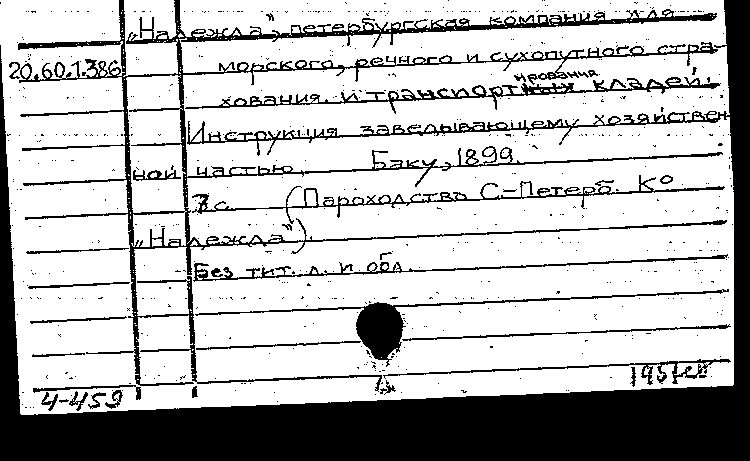 „Надежда", петербургская компания для
20.60.1.386 морского, речного и сухопутного стра-
хования и транспортирования кладей.
Инструкция заведывающему хозяйствен-
ной частью. Баку, 1899.
7 с. (Пароходства С-Петерб. К⁰
„Надежда").
Без тит. л. и обл.
4-459